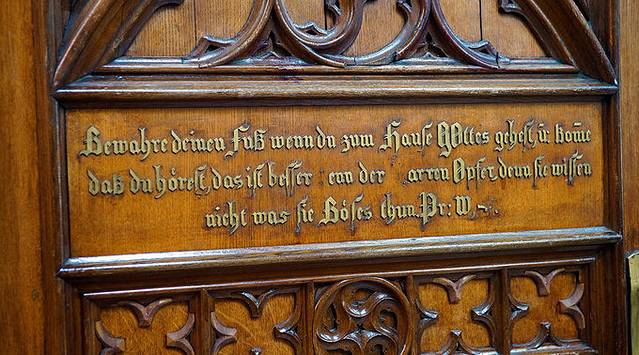 Bewahre deinen Fuß wenn du zum Hause GOttes gehest, ū kom̄e
daß du hörest, das ist besser enn der arren Opfer, denn sie wissen
nicht was sie Böses thun. Pr: W,